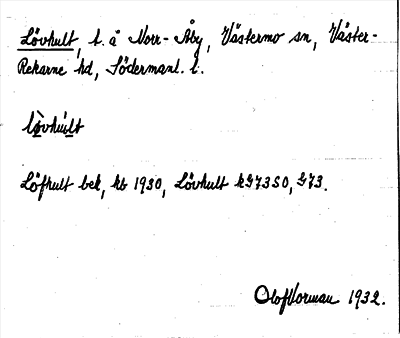 Lövhult, t. å Norr-Åby, Västermo sn, Väster-
Rekarne hd, Södermanl. l.
lò̱vhúlt
Löfhult bek, kb 1930, Lövhult kG73SO, G73.
Olof Norman 1932.